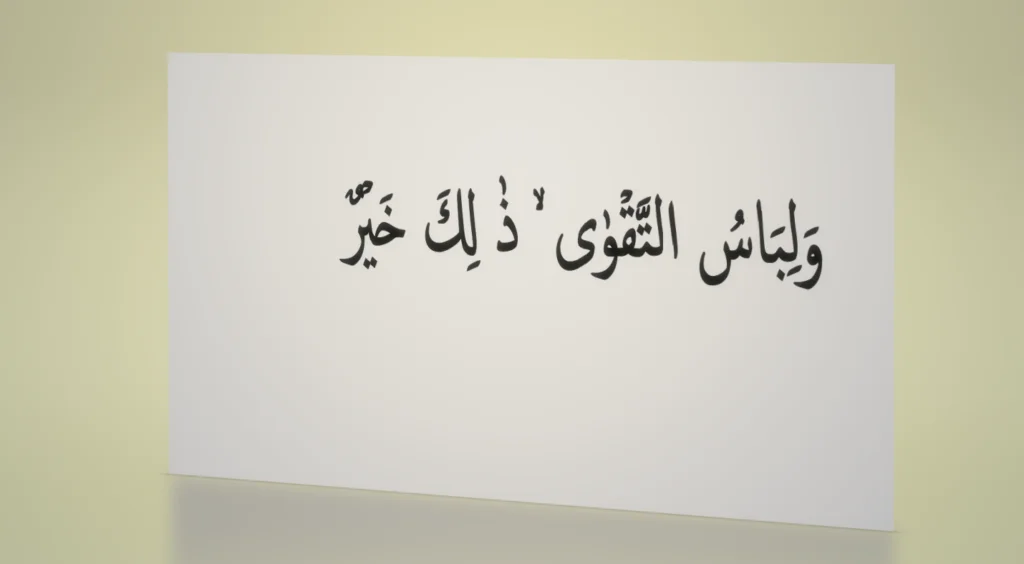 وَلِبَاسُ التَّقْوٰى ۙ ذٰ لِكَ خَيْرٌ